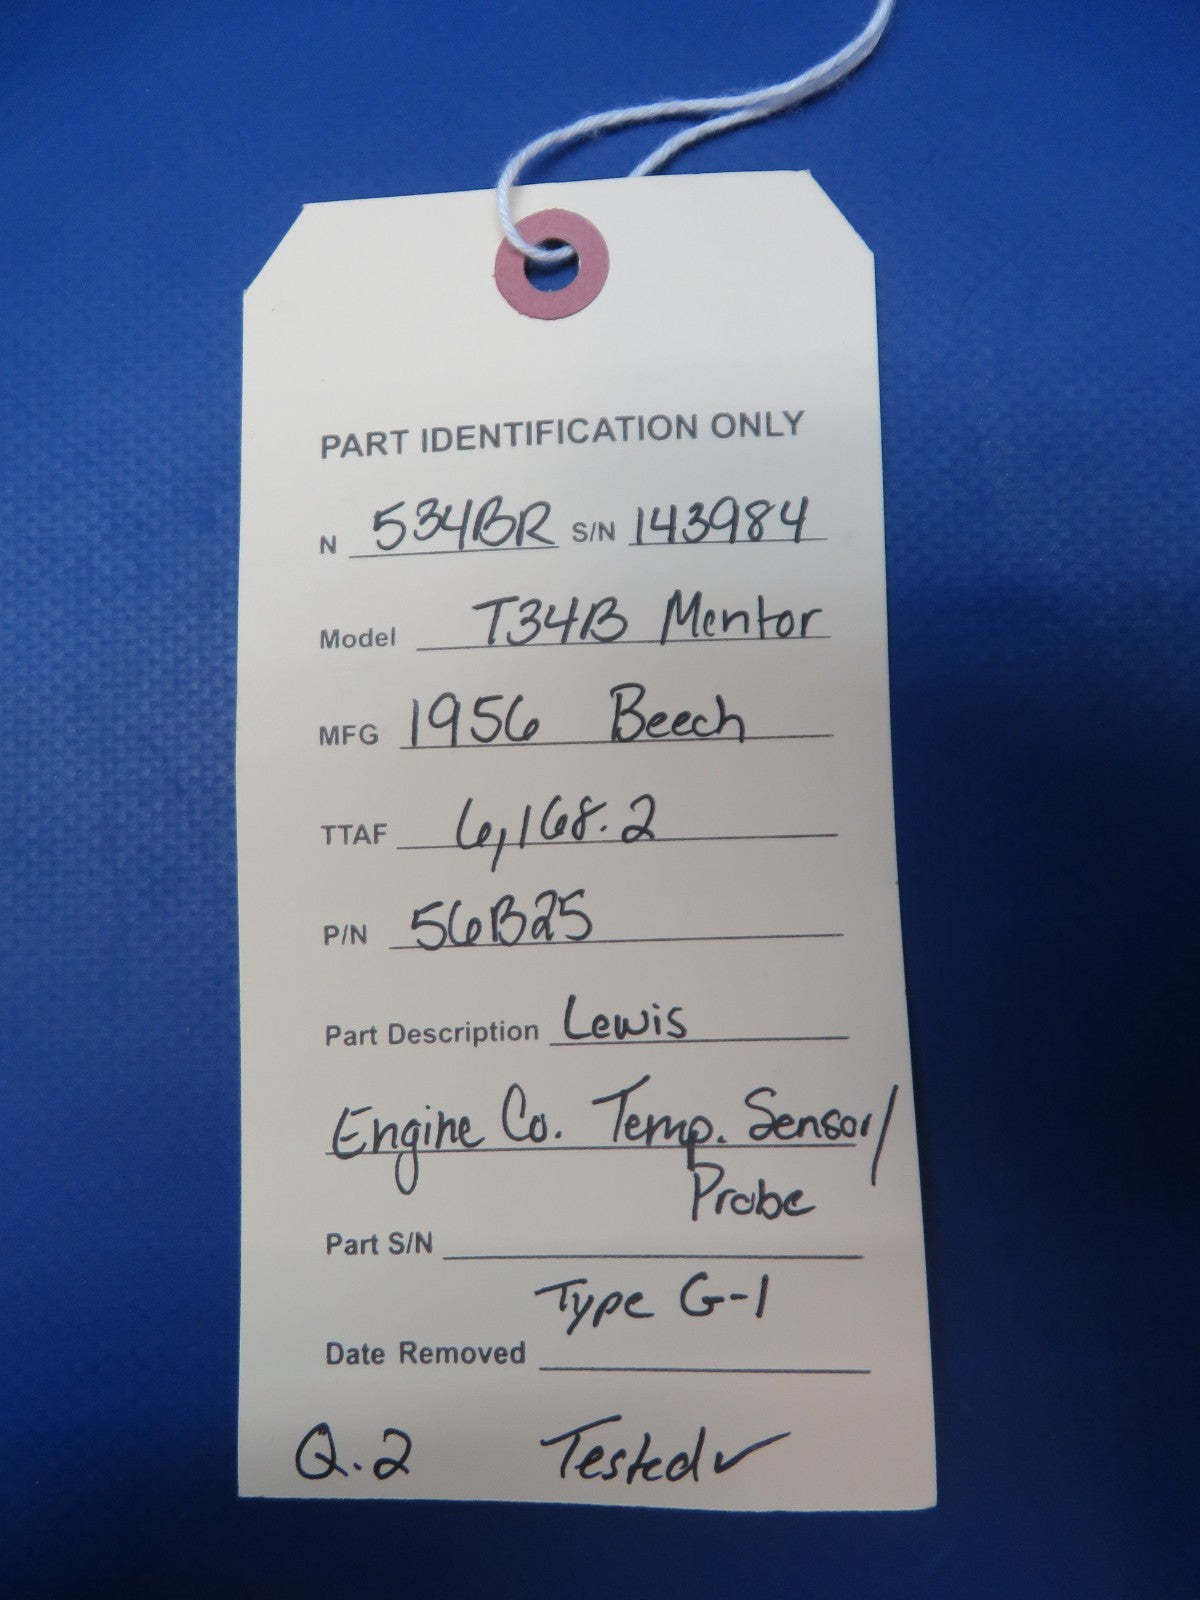 PART IDENTIFICATION ONLY
N 534BR S/N 143984
Model T34B Mentor
MFG 1956 Beech
TTAF 6,168.2
P/N 56B25
Part Description Lewis
Engine Co. Temp. Sensor/
Probe
Part S/N
Type G-1
Date Removed
Q.2 Tested✓